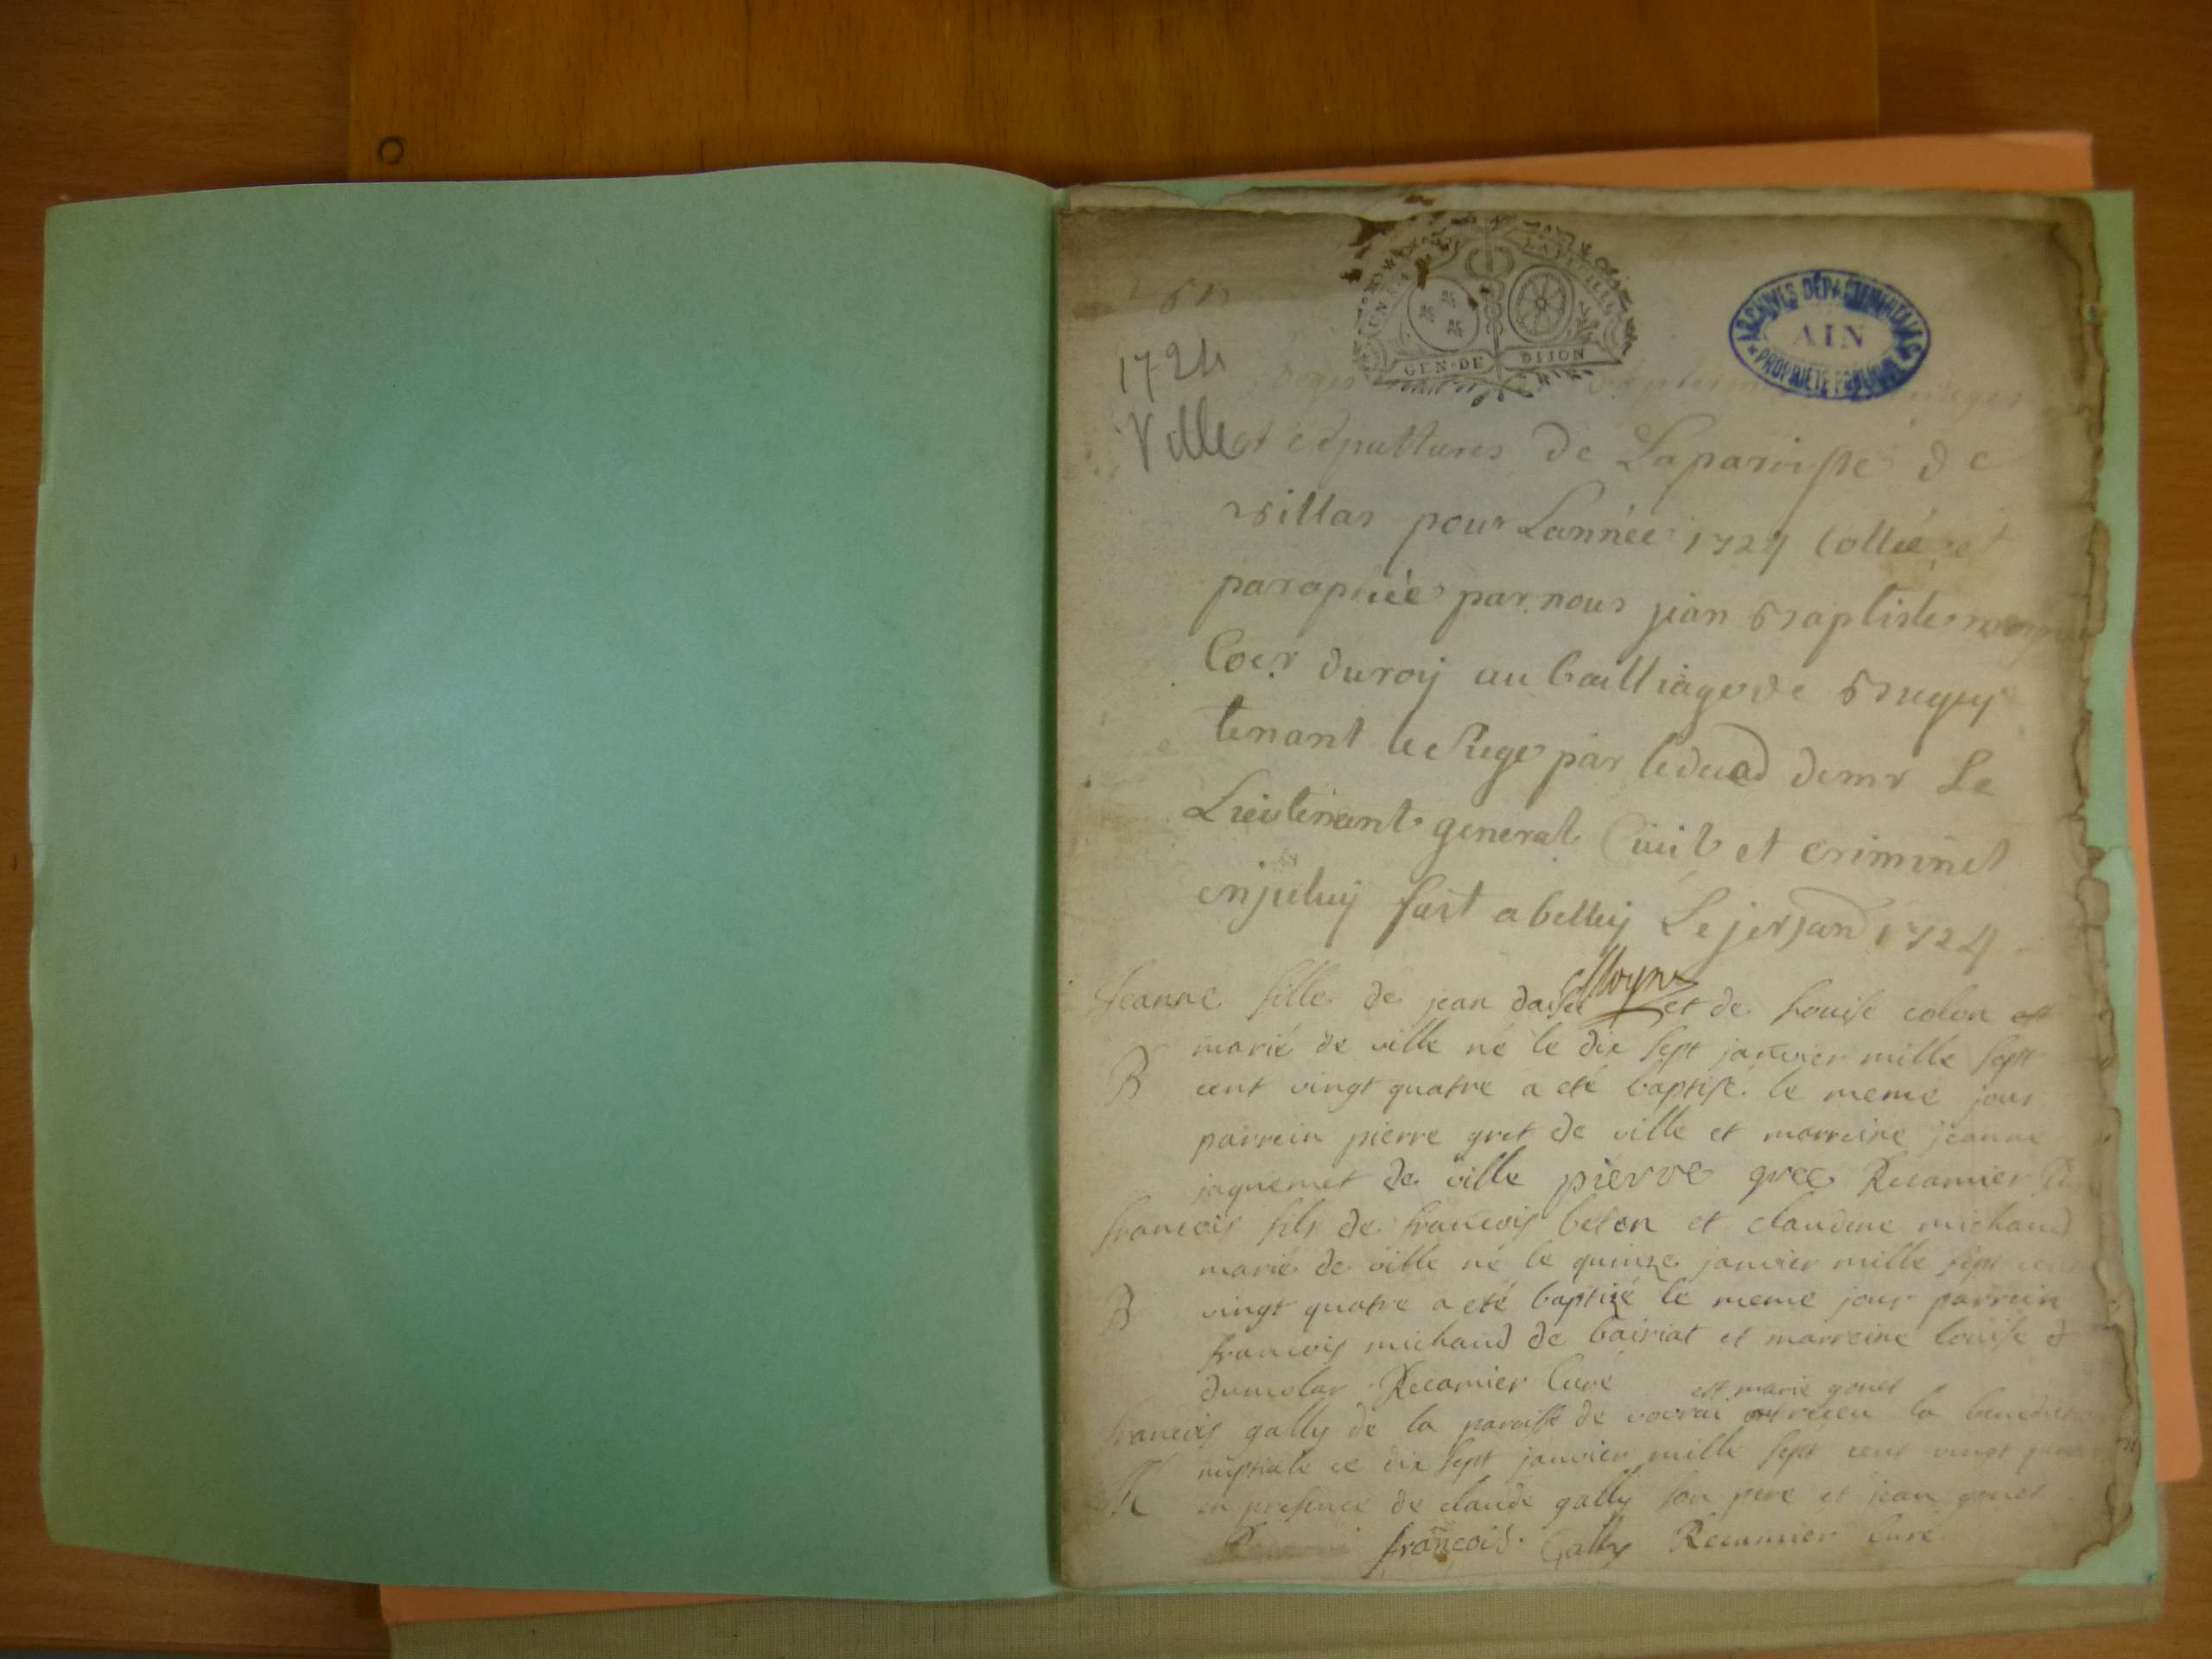 GEN·DE DIJON
ARCHIVES DÉPARTEMENTALES
AIN
PROPRIÉTÉ PUBLIQUE
1724
Ville
et sepultures de La paroisse de
villas pour Lannée 1724 Cottée et
paraphée par nous jean Baptiste
Coer du roy au bailliage de Bugey
tenant le siege par le deced de mr Le
Lieutenant general Civil et criminel
enjceluy fait a belley Le jer jan 1724
Moyne
Jeanne fille de jean et de louise colon
marié de ville né le dix sept janvier mille sept
B cent vingt quatre a eté baptisé le meme jour
parrein pierre gret de ville et marreine jeanne
jaquemet de ville pierre gree Recamier
francois fils de francois belon et claudine michaud
marié de ville né le quinze janvier mille sept cent
B vingt quatre a eté baptizé le meme jour parrein
francois michaud de bairiat et marreine louise d
dumolar Recamier Curé
et marie gonet
francois gally de la paroisse de vovrai ont receu la benediction
M nuptiale ce dix sept janvier mille sept cent vingt quatre
en presence de claude gally son pere et jean gonet
francois Gally Recamier Curé